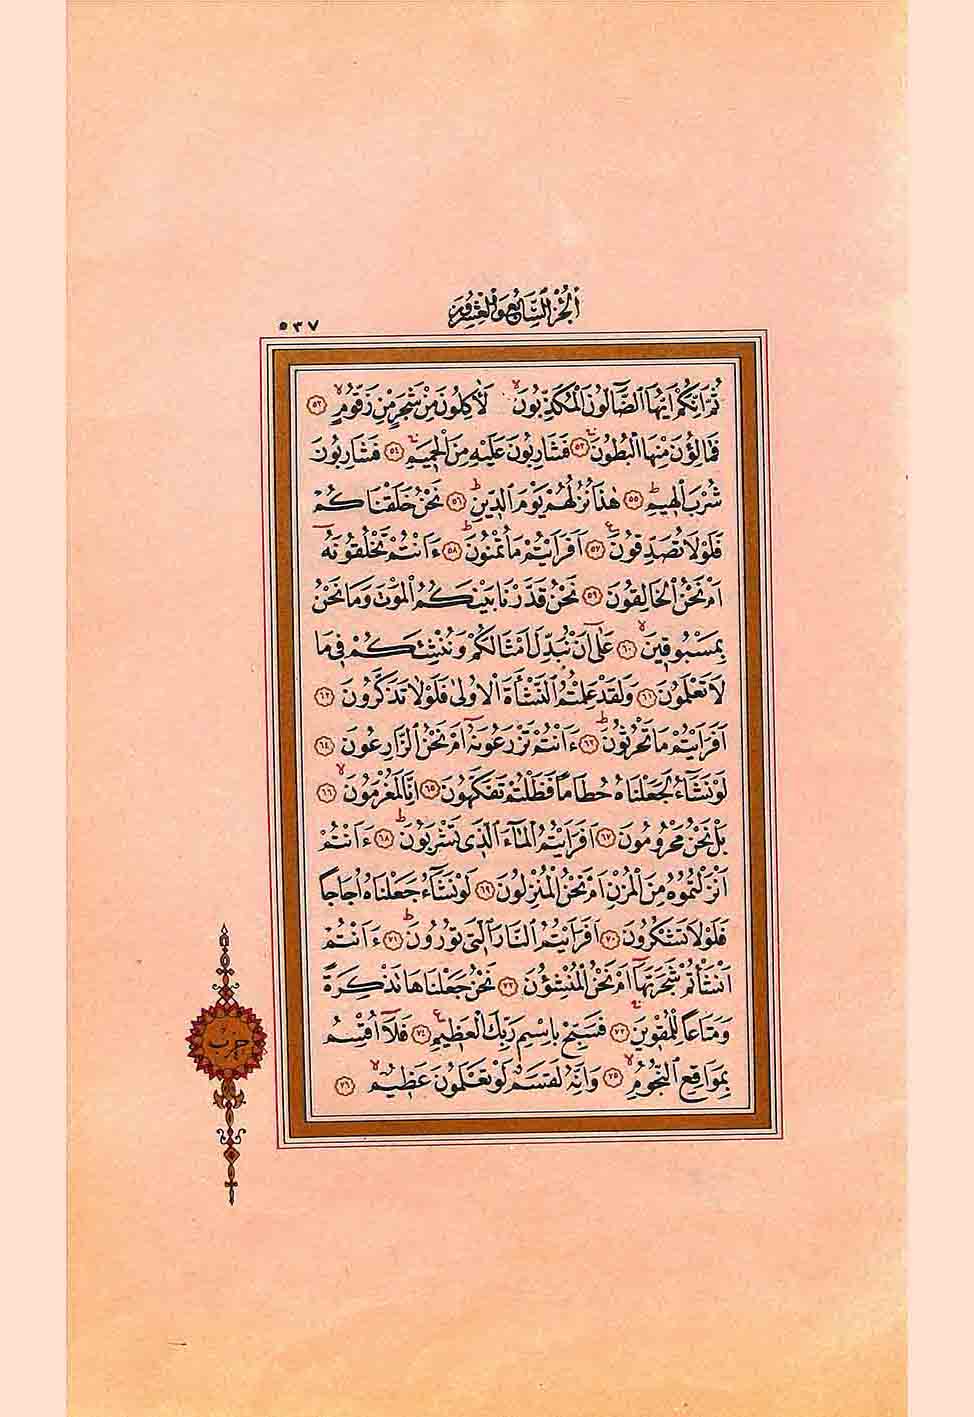 اَلْجُزْءُ السَّابِعُ وَالْعِشْرُونَ
٥٣٧
ثُمَّ اِنَّكُمْ اَيُّهَا الضَّٓالُّونَ الْمُكَذِّبُونَۙ لَاٰكِلُونَ مِنْ شَجَرٍ مِنْ زَقُّومٍۙ ﴿٥٢﴾
فَمَالِؤُنَ مِنْهَا الْبُطُونَۚ ﴿٥٣﴾ فَشَارِبُونَ عَلَيْهِ مِنَ الْحَمِيمِۚ ﴿٥٤﴾ فَشَارِبُونَ
شُرْبَ الْهِيمِۜ ﴿٥٥﴾ هٰذَا نُزُلُهُمْ يَوْمَ الدِّينِۜ ﴿٥٦﴾ نَحْنُ خَلَقْنَاكُمْ
فَلَوْلَا تُصَدِّقُونَ ﴿٥٧﴾ اَفَرَاَيْتُمْ مَا تُمْنُونَۜ ﴿٥٨﴾ ءَاَنْتُمْ تَخْلُقُونَهُٓ
اَمْ نَحْنُ الْخَالِقُونَ ﴿٥٩﴾ نَحْنُ قَدَّرْنَا بَيْنَكُمُ الْمَوْتَ وَمَا نَحْنُ
بِمَسْبُوقِينَۙ ﴿٦٠﴾ عَلٰٓى اَنْ نُبَدِّلَ اَمْثَالَكُمْ وَنُنْشِئَكُمْ فِي مَا
لَا تَعْلَمُونَ ﴿٦١﴾ وَلَقَدْ عَلِمْتُمُ النَّشْاَةَ الْاُولٰى فَلَوْلَا تَذَكَّرُونَ ﴿٦٢﴾
اَفَرَاَيْتُمْ مَا تَحْرُثُونَۜ ﴿٦٣﴾ ءَاَنْتُمْ تَزْرَعُونَهُٓ اَمْ نَحْنُ الزَّارِعُونَ ﴿٦٤﴾
لَوْ نَشَٓاءُ لَجَعَلْنَاهُ حُطَامًا فَظَلْتُمْ تَفَكَّهُونَ ﴿٦٥﴾ اِنَّا لَمُغْرَمُونَۙ ﴿٦٦﴾
بَلْ نَحْنُ مَحْرُومُونَ ﴿٦٧﴾ اَفَرَاَيْتُمُ الْمَٓاءَ الَّذِي تَشْرَبُونَۜ ﴿٦٨﴾ ءَاَنْتُمْ
اَنْزَلْتُمُوهُ مِنَ الْمُزْنِ اَمْ نَحْنُ الْمُنْزِلُونَ ﴿٦٩﴾ لَوْ نَشَٓاءُ جَعَلْنَاهُ اُجَاجًا
فَلَوْلَا تَشْكُرُونَ ﴿٧٠﴾ اَفَرَاَيْتُمُ النَّارَ الَّتِي تُورُونَۜ ﴿٧١﴾ ءَاَنْتُمْ
اَنْشَاْتُمْ شَجَرَتَهَٓا اَمْ نَحْنُ الْمُنْشِؤُنَ ﴿٧٢﴾ نَحْنُ جَعَلْنَاهَا تَذْكِرَةً
وَمَتَاعًا لِلْمُقْوِينَۚ ﴿٧٣﴾ فَسَبِّحْ بِاسْمِ رَبِّكَ الْعَظِيمِ ﴿٧٤﴾ فَلَٓا اُقْسِمُ
بِمَوَاقِعِ النُّجُومِۙ ﴿٧٥﴾ وَاِنَّهُ لَقَسَمٌ لَوْ تَعْلَمُونَ عَظِيمٌۙ ﴿٧٦﴾
حزب